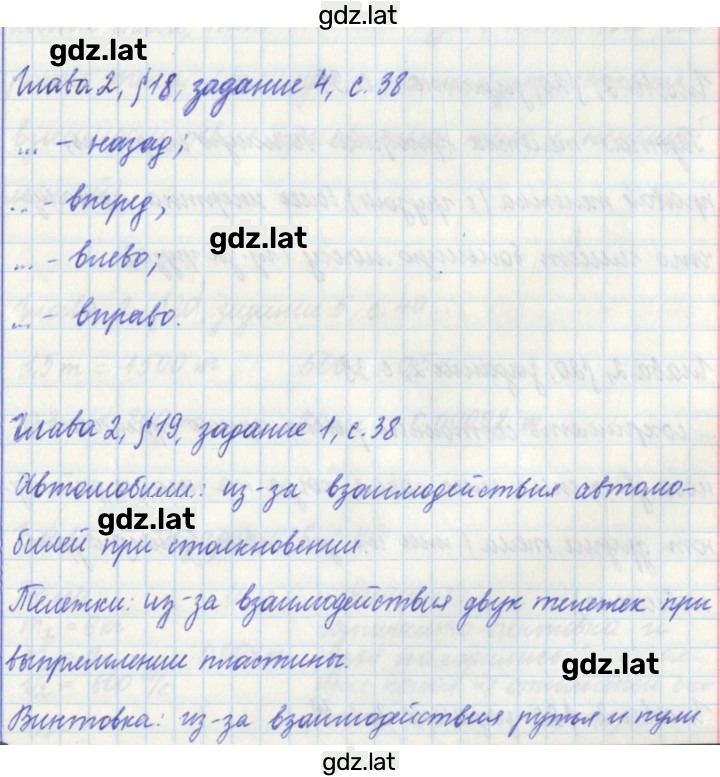 gdz.lat
gdz.lat
Глава 2, §18, задание 4, с. 38
... - назад;
... - вперед;
gdz.lat
... - влево;
... - вправо.
Глава 2, §19, задание 1, с. 38
Автомобили: из-за взаимодействия автомо-
gdz.lat
билей при столкновении.
Тележки: из-за взаимодействия двух тележек при
выпрямлении пластины.
gdz.lat
Винтовка: из-за взаимодействия ружья и пули
gdz.lat